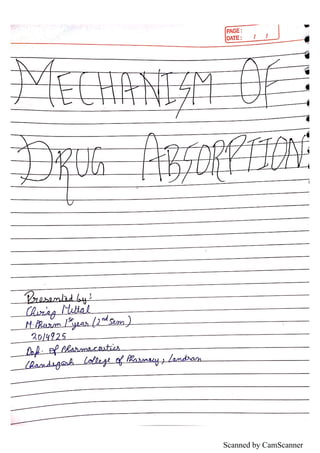 PAGE:
DATE: / /
MECHANISM OF
DRUG ABSORPTION
Presented by:
Chirag Mittal
M Pharm 1st year (2nd Sem)
2014925
Dep. of Pharmaceutics
Chandigarh College of Pharmacy, Landran
Scanned by CamScanner